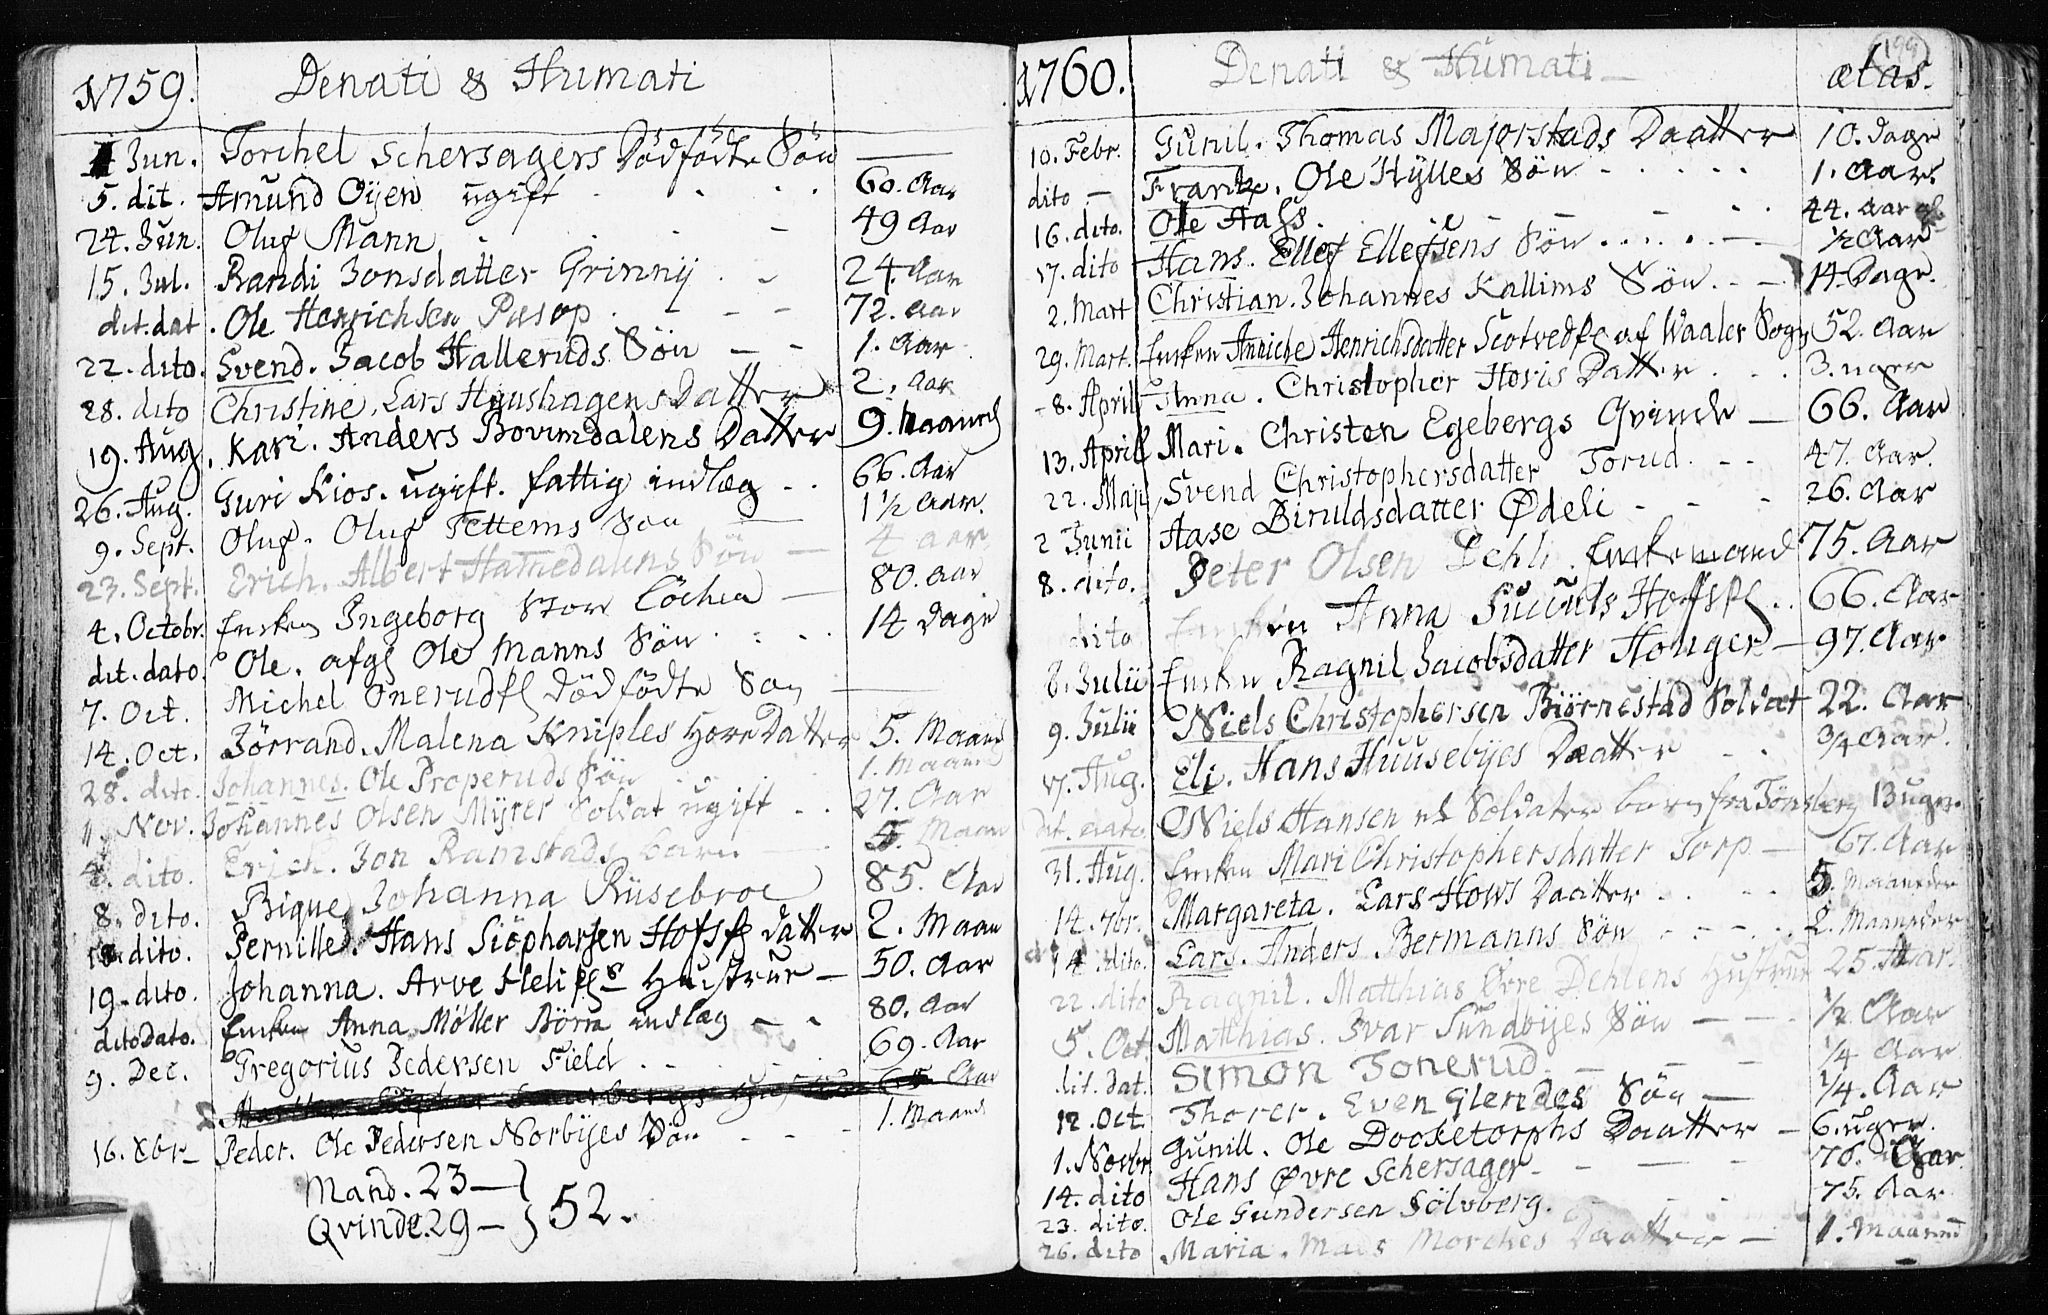 1759. Denati & Humati
Jun. Torchel Schersagers Dödfödte Sön
5. dit. Amund Oÿen ugift 60. Aar
24. Jun. Oluf Mann 49 Aar
15. Jul. Randi Jonsdatter Grinnÿ 24. Aar
dit. dat. Ole Henrichsen 72. Aar
22. dito. Svend. Jacob Halleruds Sön 1. Aar
28. dito Christine. Lars Datter 2. Aar
19. Aug. Kari. Anders Bovimdalens Datter 9. Maaned
26. Aug. Guri Kios. ugift. fattig indlæg 66. Aar
9. Sept. Oluf. Oluf Tettems Sön 1 1/2 Aar.
23. Sept. Erich. Albert Hamedalens Sön 4 aar
4. Octobr. Enken Ingeborg Stor 80. Aar
dit. dato. Ole. afg Ole Manns Sön 14 Dage
7. Oct. Michel Onerud dödfödte Søn
14. Oct. Jörrand. Malena Kniples Hore Datter 5. Maan
28. dito. Johannes. Ole Properuds Sön 1. Maan
11 Nov. Johannes Olsen Mÿrer Soldat ugift 27. Aar
dito. Erich. Jon Ramstads barn 5. Maan
8. dito. Pique Johanna Rüsebroe 85. Aar
dito. Pernille. Hans Hofs datter 2. Maan
19. dito. Johanna. Arve Hustrue 50. Aar
dito Dato. Enken Anna Möller Börn indlæg 80. Aar
9. Dec. Gregorius Pedersen Field 69. Aar
Aar
16. Xbr Peder. Ole Pedersen Norbÿes Sön 1. Maaned
Mand. 23
Qvinde. 29 } 52.
199
1760. Denati & Humati ætas.
10. Febr. Gunil. Thomas Majorstads Daatter 10. Dage
dito Frantz. Ole Hÿlles Sön 1. Aar
16. dito. Ole Aas 44. Aar
17. dito Hans. Ellef Ellefsens Sön 1/2 Aar
2. Mart Christian. Johannes Kallims Sön 14. Dage.
29. Mart. Enken Anniche Henrichsdatter af Waaler Sogn 52. Aar
8. April Anna. Christopher Hovis Datter 3. uger
13. April Mari. Christen Egebergs Qvinde 66. Aar
22. Maji Svend Christophersdatter Torud 47. Aar.
2 Junii Aase Biruldsdatter Ødeli 26. Aar
8. dito. Peter Olsen Dehli. Enkemand 75. Aar
dito Enken Anna 66. Aar
8. Julii Enken Ragnil Jacobsdatter Houger 97. Aar
9. Julii Niels Christophersen Biörnestad Soldat 22. Aar
17. Aug. Eli. Hans Huusebÿes Daatter 3/4 Aar.
dit. dato. Niels Hansen Soldater barn fra Tönsberg 13 uger.
31. Aug. Enken Mari Christophersdatter Torp 67. Aar
14. 7br. Margareta. Lars Hows Daatter 5. Maaneder
14. dito. Lars. Anders Bermanns Sön 2. Maaneder
22. dito Ragnil. Matthias Øvre Dehlens Hustrue 25. Aar.
5. Oct. Matthias. Ivar Sundbÿes Sön 1/2 Aar
dit. dat. Simon Tonerud. 1/4 Aar
12. Oct. Thorer. Even Glendes Sön 1/4. Aar
1. Novbr Gunill. Ole Dooketorphs Daatter 6. uger.
14. dito Hans Øvre Schersager 76. Aar
23. dito. Ole Gundersen Sölvberg. 75. Aar
26. dito Maria. Mads Morches Daatter 1. Maaned